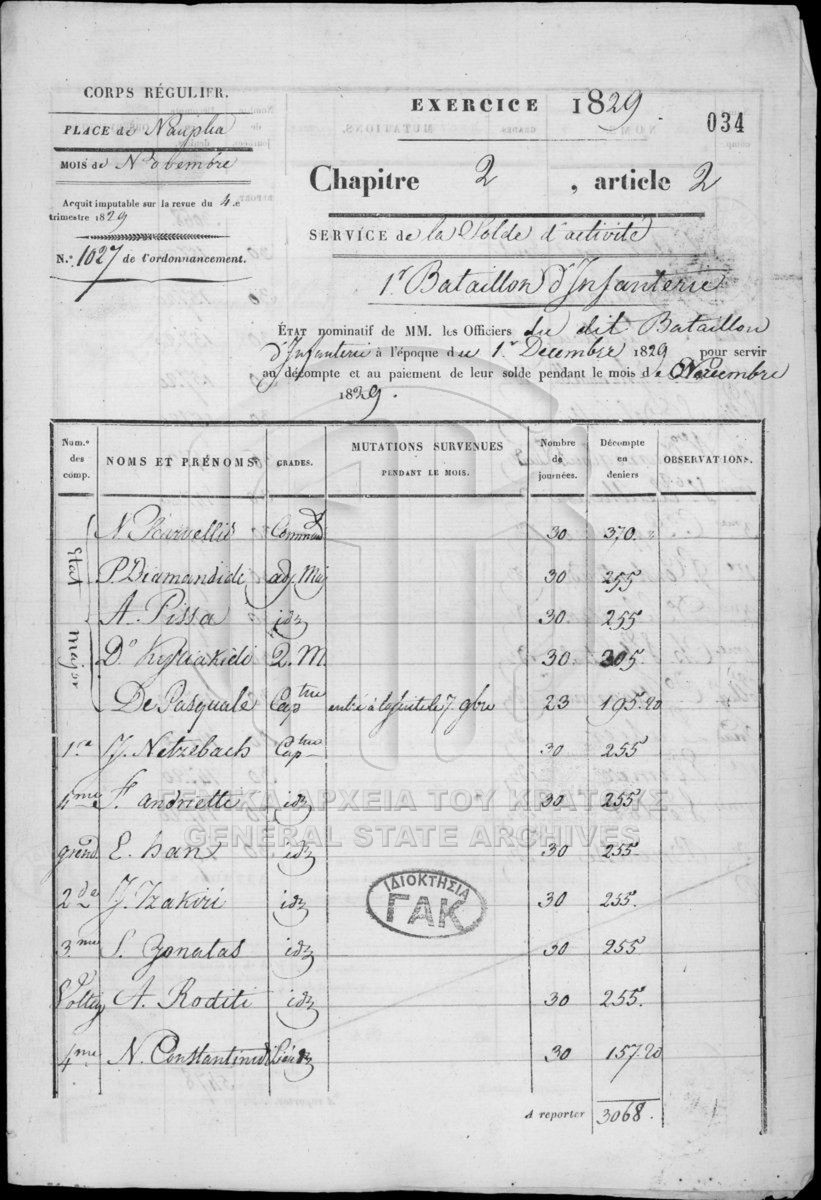 CORPS RÉGULIER.
PLACE de Nauplia
MOIS de Novembre
Acquit imputable sur la revue du 4.e
trimestre 1829
N.o 1027 de l'ordonnancement.
EXERCICE 1829.
034
Chapitre 2, article 2
SERVICE de la Solde d'activité
1r Bataillon d'Infanterie
ÉTAT nominatif de MM. les Officiers du dit Bataillon
d'Infanterie à l'époque du 1r Decembre 1829 pour servir
au décompte et au paiement de leur solde pendant le mois de Novembre
1829.
Num.o des comp. NOMS ET PRÉNOMS GRADES. MUTATIONS SURVENUES PENDANT LE MOIS. Nombre de journées. Décompte en deniers OBSERVATIONS.
Etat major
N 30 370.
P. Diamandidi adj Maj 30 255
A. Pissa id 30. 255
Do Kyriakidi Q. M 30. 305.
De Pasquale Captne 7 gbre 23 195.20
1re J. Netzebach Captne 30 255
5me F. andriette id 30 255
grend. E. han id 30 255.
2de J. Tzakiri id 30 255.
3me S. Zonatas id 30 255
Voltig A. Roditi id 30 255.
4me N. Constantinidi 30 157.20
A reporter 3068.
ΓΕΝΙΚΑ ΑΡΧΕΙΑ ΤΟΥ ΚΡΑΤΟΥΣ
GENERAL STATE ARCHIVES
ΙΔΙΟΚΤΗΣΙΑ
ΓΑΚ